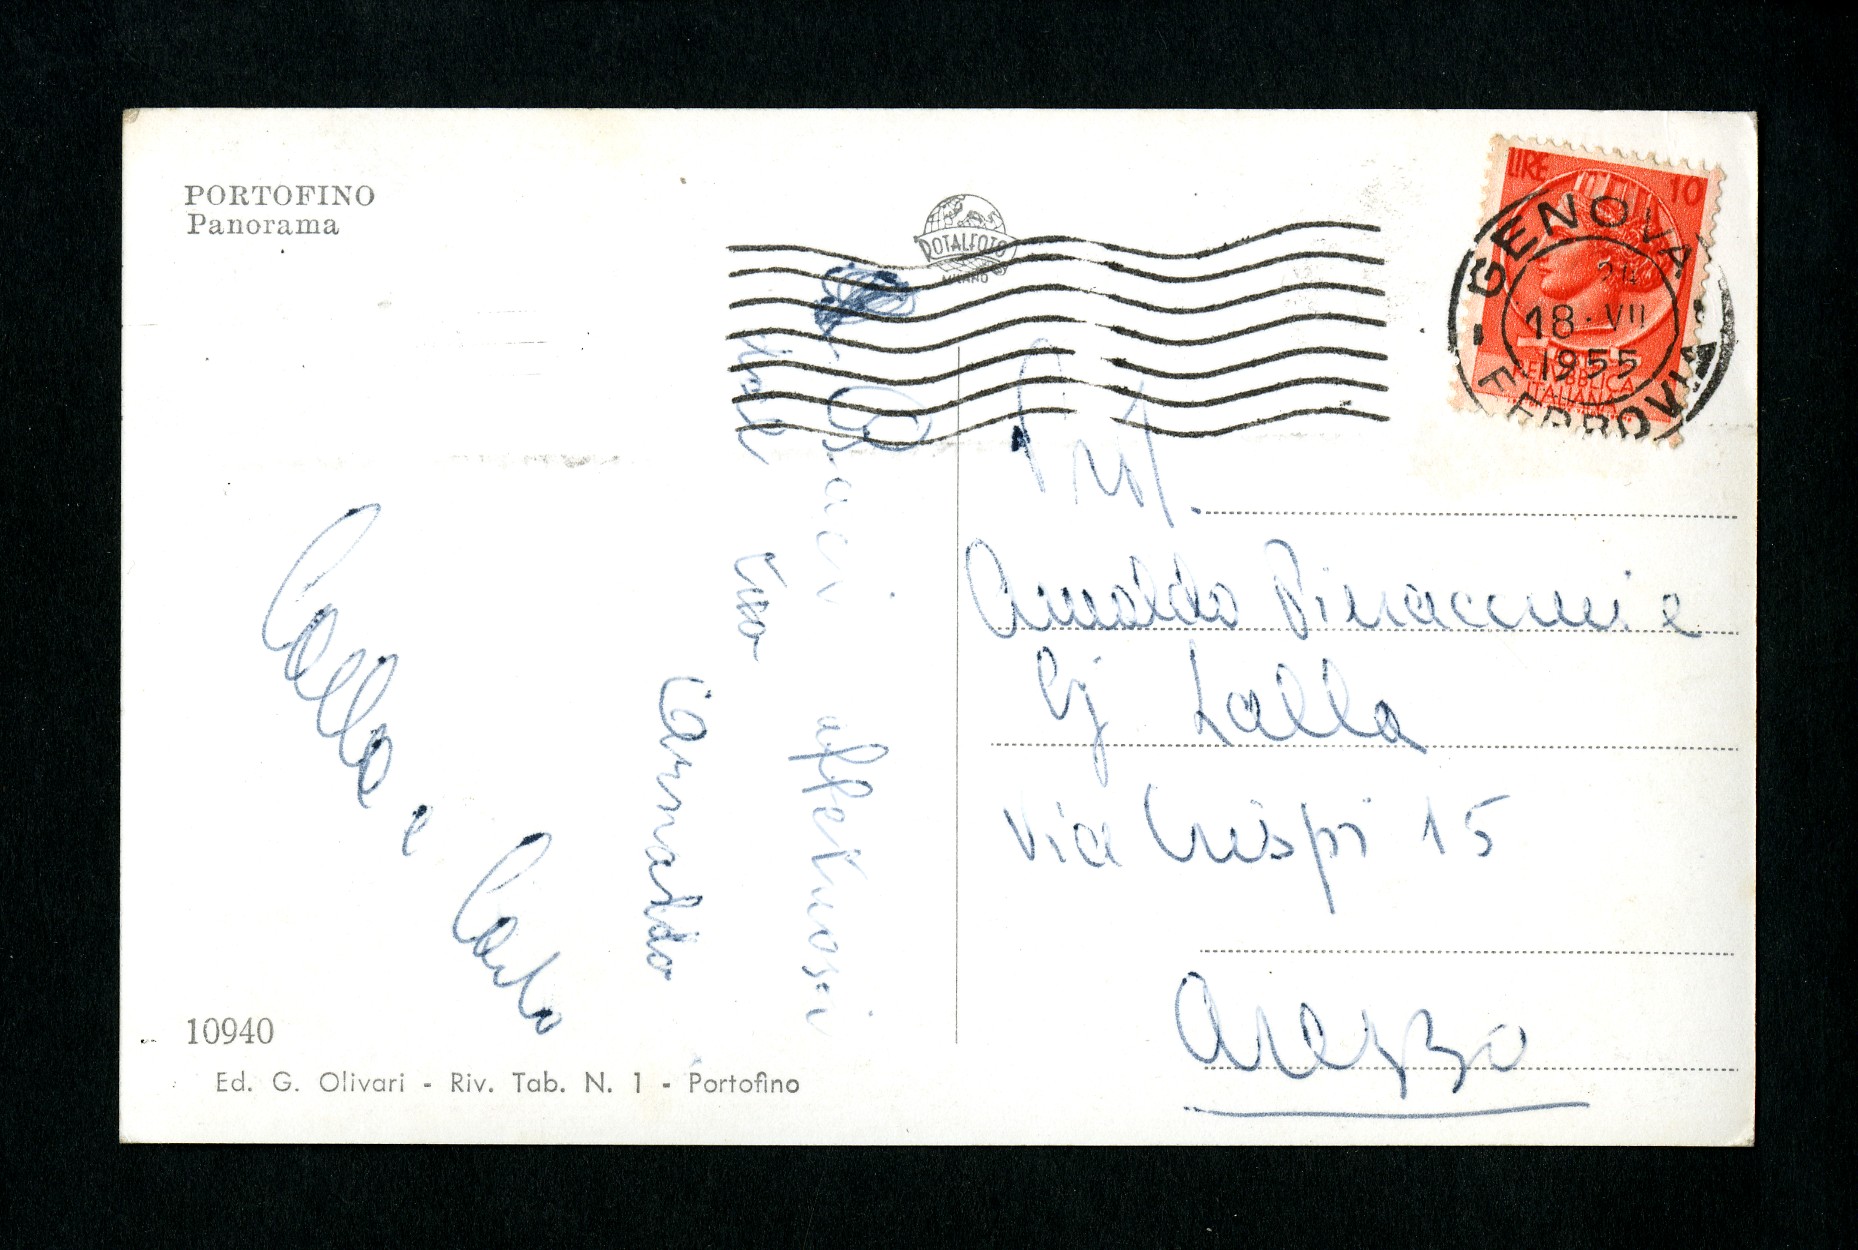 PORTOFINO
Panorama
DOTALFOTO
MILANO
LIRE 10
REPUBBLICA
ITALIANA
GENOVA
18·VII
1955
FERROVIA
Baci affettuosi
Carnaldo
Lalla e Carlo
Prof.
Arnaldo Pinaccini e
Lalla
Via Crispi 15
Arezzo
10940
Ed. G. Olivari - Riv. Tab. N. 1 - Portofino